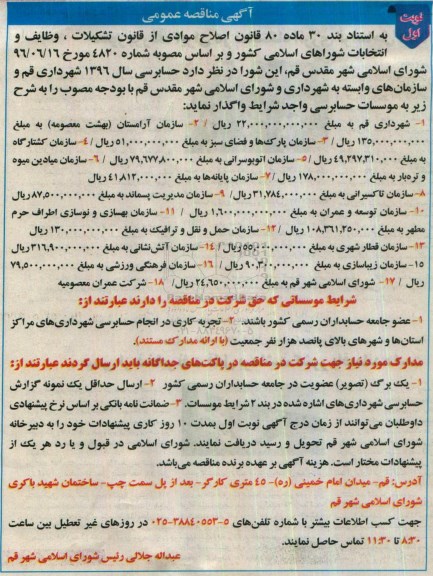 آگهی مناقصه عمومی
نوبت اول
به استناد بند ۳۰ ماده ۸۰ قانون اصلاح موادی از قانون تشکیلات ، وظایف و
انتخابات شوراهای اسلامی کشور و بر اساس مصوبه شماره ۴۸۲۰ مورخ ۹۶/۰۶/۱۶
شورای اسلامی شهر مقدس قم، این شورا در نظر دارد حسابرسی سال ۱۳۹۶ شهرداری قم و
سازمان‌های وابسته به شهرداری و شورای اسلامی شهر مقدس قم با بودجه مصوب را به شرح
زیر به موسسات حسابرسی واجد شرایط واگذار نماید:
۱- شهرداری قم به مبلغ ۲۲,۰۰۰,۰۰۰,۰۰۰,۰۰۰ ریال / ۲- سازمان آرامستان (بهشت معصومه) به مبلغ
۱۳۵,۰۰۰,۰۰۰,۰۰۰ ریال / ۳- سازمان پارک‌ها و فضای سبز به مبلغ ۵۱,۰۰۰,۰۰۰,۰۰۰ ریال / ۴- سازمان کشتارگاه
به مبلغ ۴۹,۲۹۷,۳۱۰,۰۰۰ ریال / ۵- سازمان اتوبوسرانی به مبلغ ۷۹,۶۷۷,۸۰۰,۰۰۰ ریال / ۶- سازمان میادین میوه
و تره‌بار به مبلغ ۱۷۸,۰۰۰,۰۰۰,۰۰۰ ریال / ۷- سازمان پایانه‌ها به مبلغ ۴۱,۸۱۲,۰۰۰,۰۰۰ ریال
۸- سازمان تاکسیرانی به مبلغ ۳۱,۷۸۴,۰۰۰,۰۰۰ ریال/ ۹- سازمان مدیریت پسماند به مبلغ ۸۷,۵۰۰,۰۰۰,۰۰۰ ریال
۱۰- سازمان توسعه و عمران به مبلغ ۱,۶۰۰,۰۰۰,۰۰۰,۰۰۰ ریال / ۱۱- سازمان بهسازی و نوسازی اطراف حرم
مطهر به مبلغ ۱۰۸,۳۶۱,۲۵۰,۰۰۰ ریال / ۱۲- سازمان حمل و نقل و ترافیک به مبلغ ۱۳۰,۰۰۰,۰۰۰,۰۰۰ ریال
۱۳- سازمان قطار شهری به مبلغ ۵۵۰,۰۰۰,۰۰۰,۰۰۰ ریال/ ۱۴- سازمان آتش‌نشانی به مبلغ ۳۱۶,۹۰۰,۰۰۰,۰۰۰ ریال
۱۵- سازمان زیباسازی به مبلغ ۹۰,۳۰۰,۰۰۰,۰۰۰ ریال / ۱۶- سازمان فرهنگی ورزشی به مبلغ ۷۹,۵۰۰,۰۰۰,۰۰۰
ریال / ۱۷- شورای اسلامی شهر قم به مبلغ ۲۴,۶۵۰,۰۰۰,۰۰۰ ریال/ ۱۸- شرکت عمران معصومیه
شرایط موسساتی که حق شرکت در مناقصه را دارند عبارتند از:
۱- عضو جامعه حسابداران رسمی کشور باشند. ۲- تجربه کاری در انجام حسابرسی شهرداری‌های مراکز
استان‌ها و شهرهای بالای پانصد هزار نفر جمعیت (با ارائه مدارک مستند).
مدارک مورد نیاز جهت شرکت در مناقصه در پاکت‌های جداگانه باید ارسال گردند عبارتند از:
۱- یک برگ (تصویر) عضویت در جامعه حسابداران رسمی کشور ۲- ارسال حداقل یک نمونه گزارش
حسابرسی شهرداری‌های اشاره شده در بند ۲ شرایط موسسات. ۳- ضمانت نامه بانکی بر اساس نرخ پیشنهادی
داوطلبان می‌توانند از زمان درج آگهی نوبت اول بمدت ۱۰ روز کاری پیشنهادات خود را به دبیرخانه
شورای اسلامی شهر قم تحویل و رسید دریافت نمایند. شورای اسلامی در قبول و یا رد هر یک از
پیشنهادات مختار است. هزینه آگهی بر عهده برنده مناقصه می‌باشد.
آدرس: قم- میدان امام خمینی (ره)- ۴۵ متری کارگر- بعد از پل سمت چپ- ساختمان شهید باکری
شورای اسلامی شهر قم
جهت کسب اطلاعات بیشتر با شماره تلفن‌های ۵-۳۸۸۴۰۵۵۳-۰۲۵ در روزهای غیر تعطیل بین ساعت
۸:۳۰ تا ۱۱:۳۰ تماس حاصل نمایند.
عبداله جلالی رئیس شورای اسلامی شهر قم